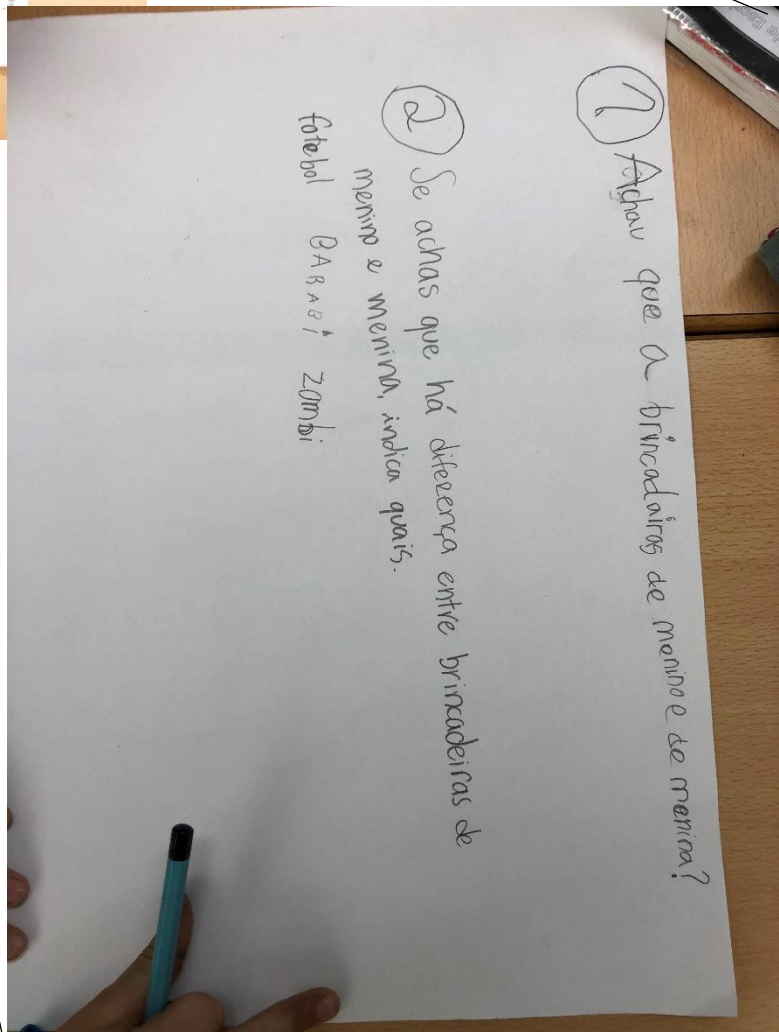 1 Achau que a brincadairas de menino e de menina?
2 Se achas que há diferença entre brincadeiras de
menino e menina, indica quais.
fotebol BABABi zombi